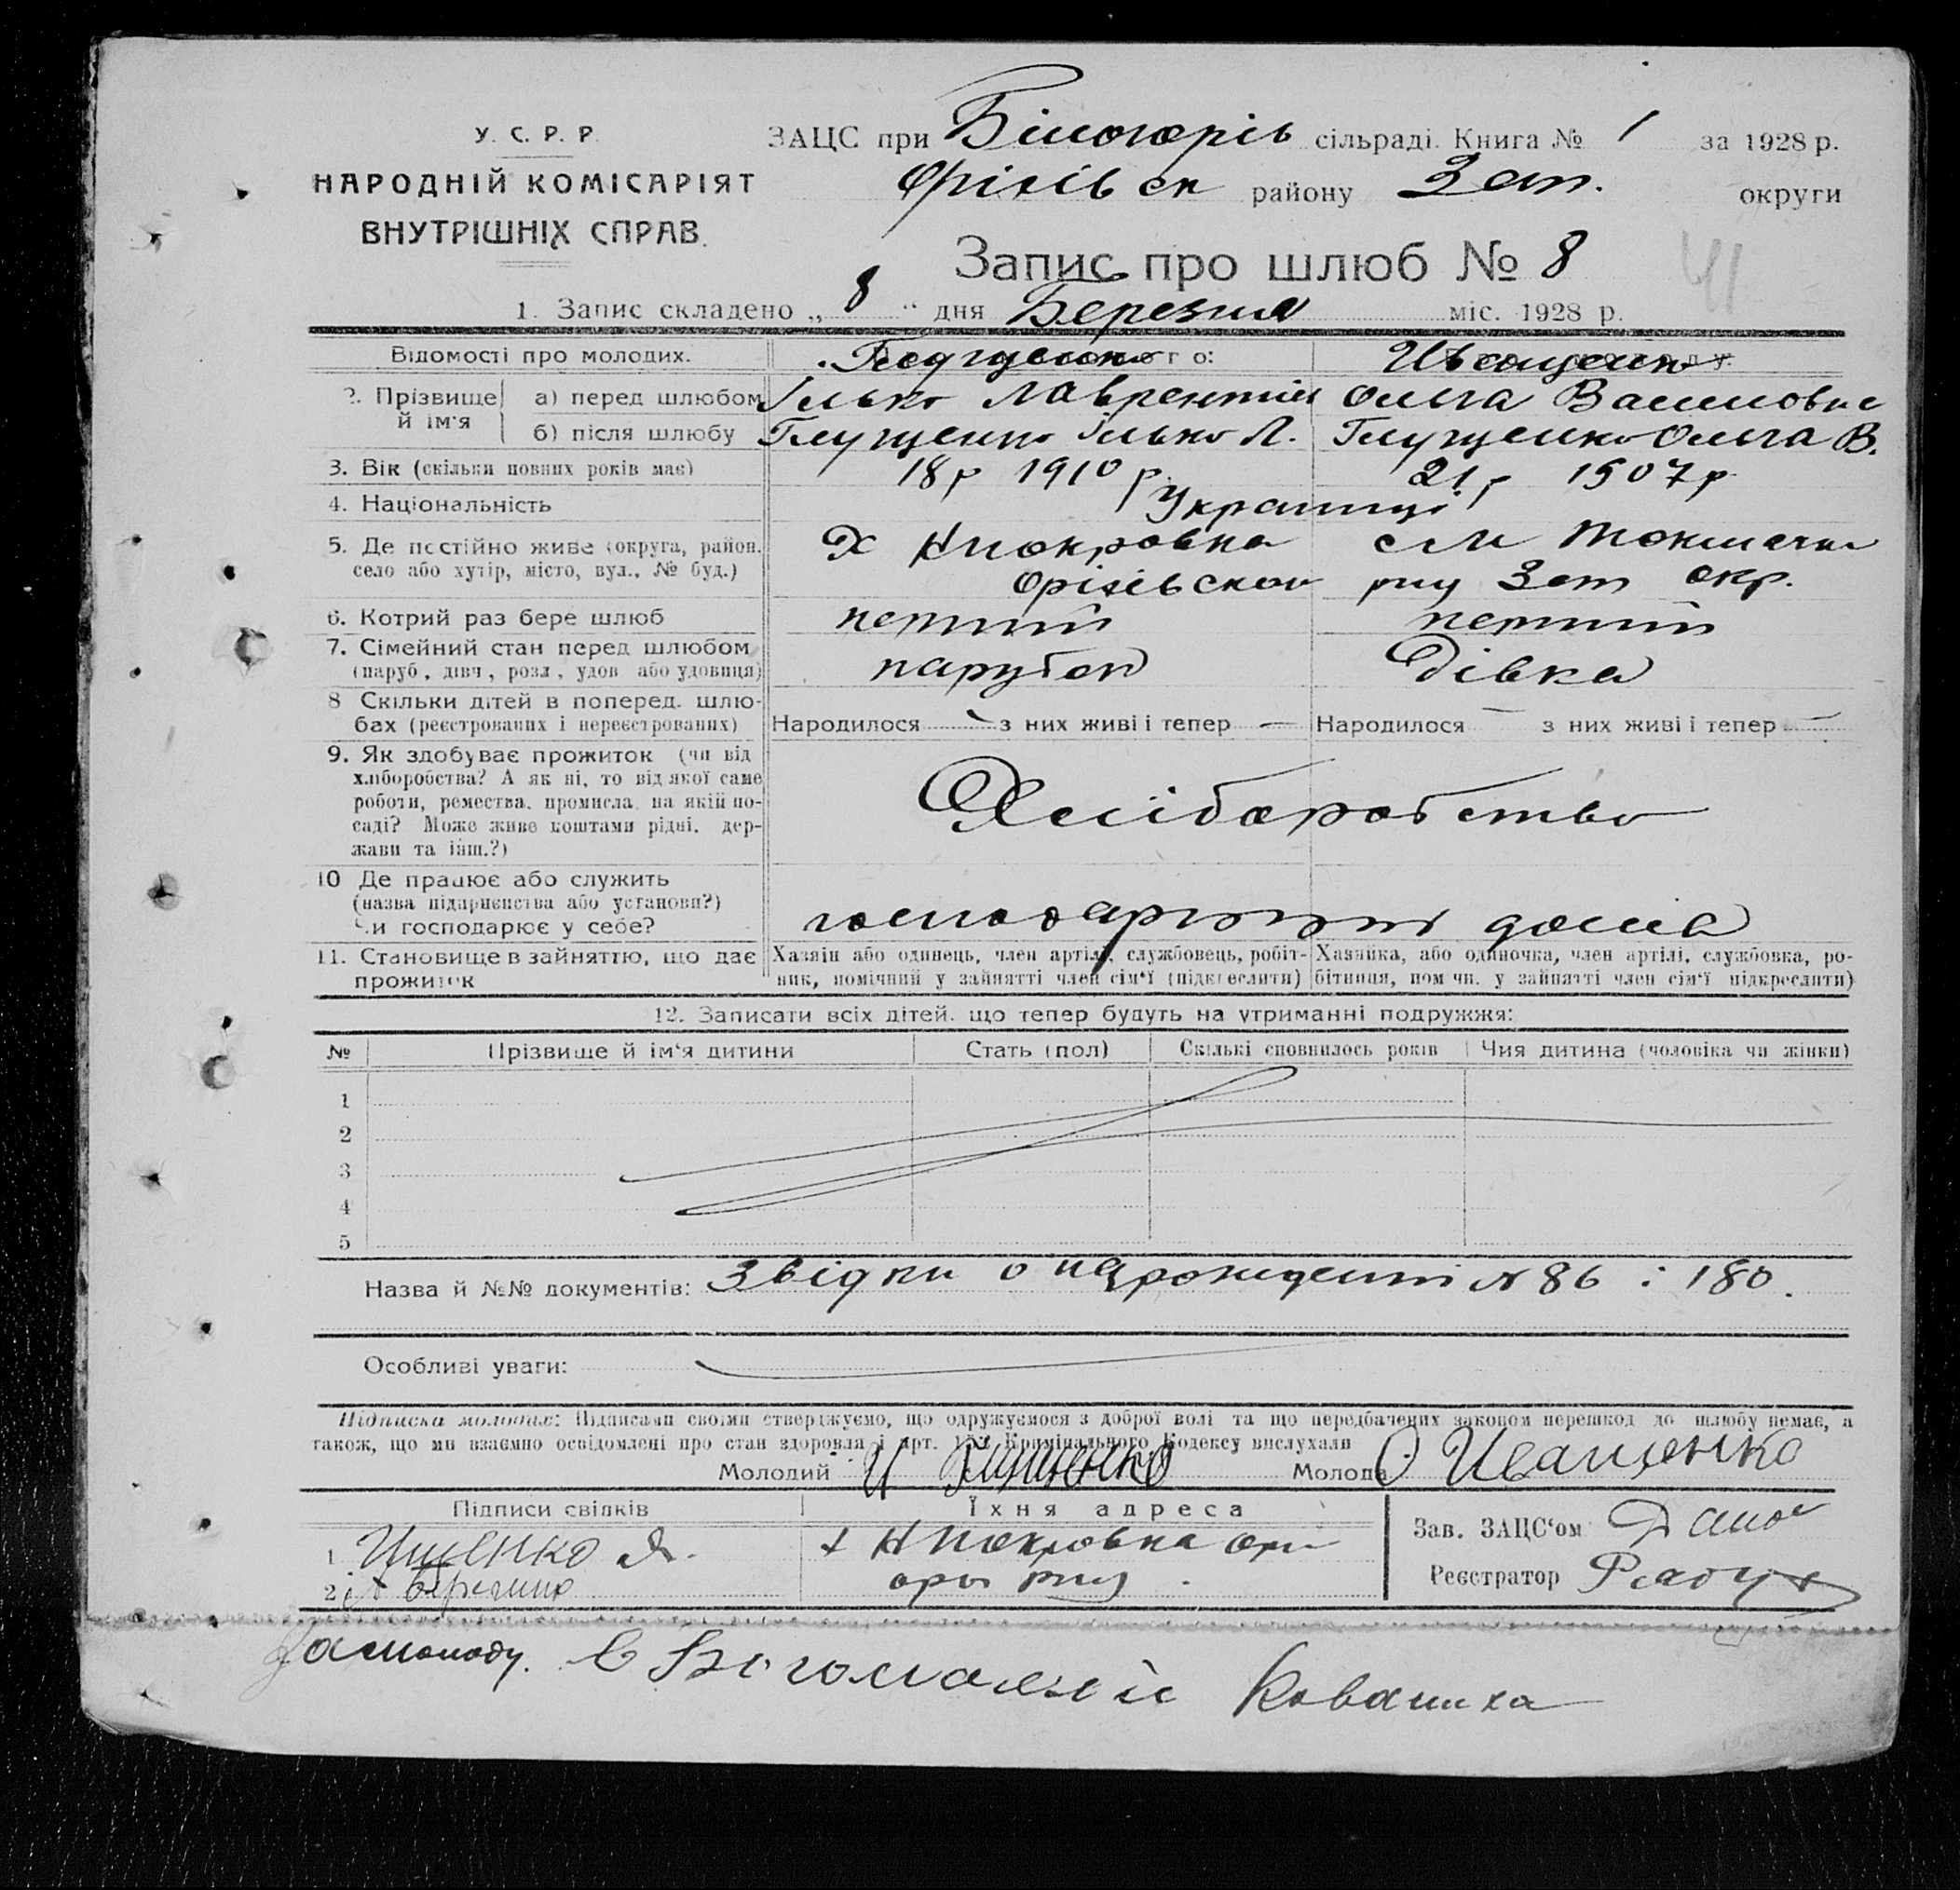 У. С. Р. Р.
НАРОДНІЙ КОМІСАРІЯТ
ВНУТРІШНІХ СПРАВ.
ЗАЦС при Білогорів сільраді. Книга № 1 за 1928 р.
Оріхівськ району Зап. округи
Запис про шлюб № 8
41
1. Запис складено „8“ дня Березня міс. 1928 р.
Відомості про молодих. Глущенко Іващенко
2. Прізвище й ім'я а) перед шлюбом Ілько Лаврентій Ольга
б) після шлюбу Глущенко Ілько Л. Глущенко Ольга В.
3. Вік (скільки повних років має) 18 р 1910 р 21 р 1907 р
4. Національність Українці
5. Де постійно живе (округа, район, Х Нпокровка с М Токмачка
село або хутір, місто, вул., № буд.) Оріхівськой рну Зап окр.
6. Котрий раз бере шлюб перший перший
7. Сімейний стан перед шлюбом
(паруб., дівч., розл., удов. або удовиця) парубок Дівка
8 Скільки дітей в поперед. шлю-
бах (реєстрованих і нереєстрованих) Народилося — з них живі і тепер — Народилося — з них живі і тепер —
9. Як здобуває прожиток (чи від
хліборобства? А як ні, то від якої саме
роботи, ремества, промисла, на якій по-
саді? Може живе коштами рідні, дер-
жави та інш.?) Хліборобство
10 Де працює або служить
(назва підприємства або установи?)
Чи господарює у себе? дома
11. Становище в зайняттю, що дає Хазяін або одинець, член артілі, службовець, робіт- Хазяйка, або одиночка, член артілі, службовка, ро-
прожиток ник, помічний у зайнятті член сім'ї (підкреслити) бітниця, помічн. у зайнятті член сім'ї підкреслити)
12. Записати всіх дітей, що тепер будуть на утриманні подружжя:
№ Прізвище й ім'я дитини Стать (пол) Скількі сповнилось років Чия дитина (чоловіка чи жінки)
1
2
3
4
5
Назва й №№ документів: Звідки о нарождении № 86 і 180.
Особливі уваги:
Підписка молодих: Підписами своїми стверджуємо, що одружуємося з доброї волі та що передбачених законом перешкод до шлюбу немає, а
також, що ми взаємно освідомлені про стан здоровля і арт. Кримінального Кодексу вислухали
Молодий И Глущенко Молода О Иващенко
Підписи свідків Їхня адреса
1 Ищенко Я. х Нпокровка Зав. ЗАЦС'ом
2 рну. Реєстратор
за молоду.